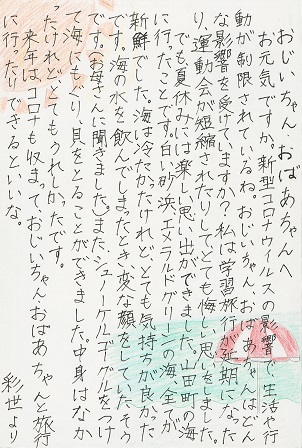 おじいちゃん、おばあちゃんへ
お元気ですか。新型コロナウイルスの影響で、生活や行
動が制限されているね。おじいちゃん、おばあちゃんはどん
な影響を受けていますか?私は学習旅行が延期になった
り、運動会が短縮されたりして、とても悔しい思いをしました。
でも夏休みには楽しい思い出ができました。山田町の海
に行ったことです。白い砂浜、エメラルドグリーンの海、全てが
新鮮でした。海は冷たかったけれど、とても気持ちが良かった
です。海の水を飲んでしまったとき、変な顔をしていたそう
です。お母さんに聞きました。また、シュノーケルゴーグルをつけ
て海にもぐり、貝をとることができました。中身はなか
ったけれど、とてもうれしかったです。
来年は、コロナも収まっておじいちゃん、おばあちゃんと旅行
に行ったりできるといいな。
彩世より